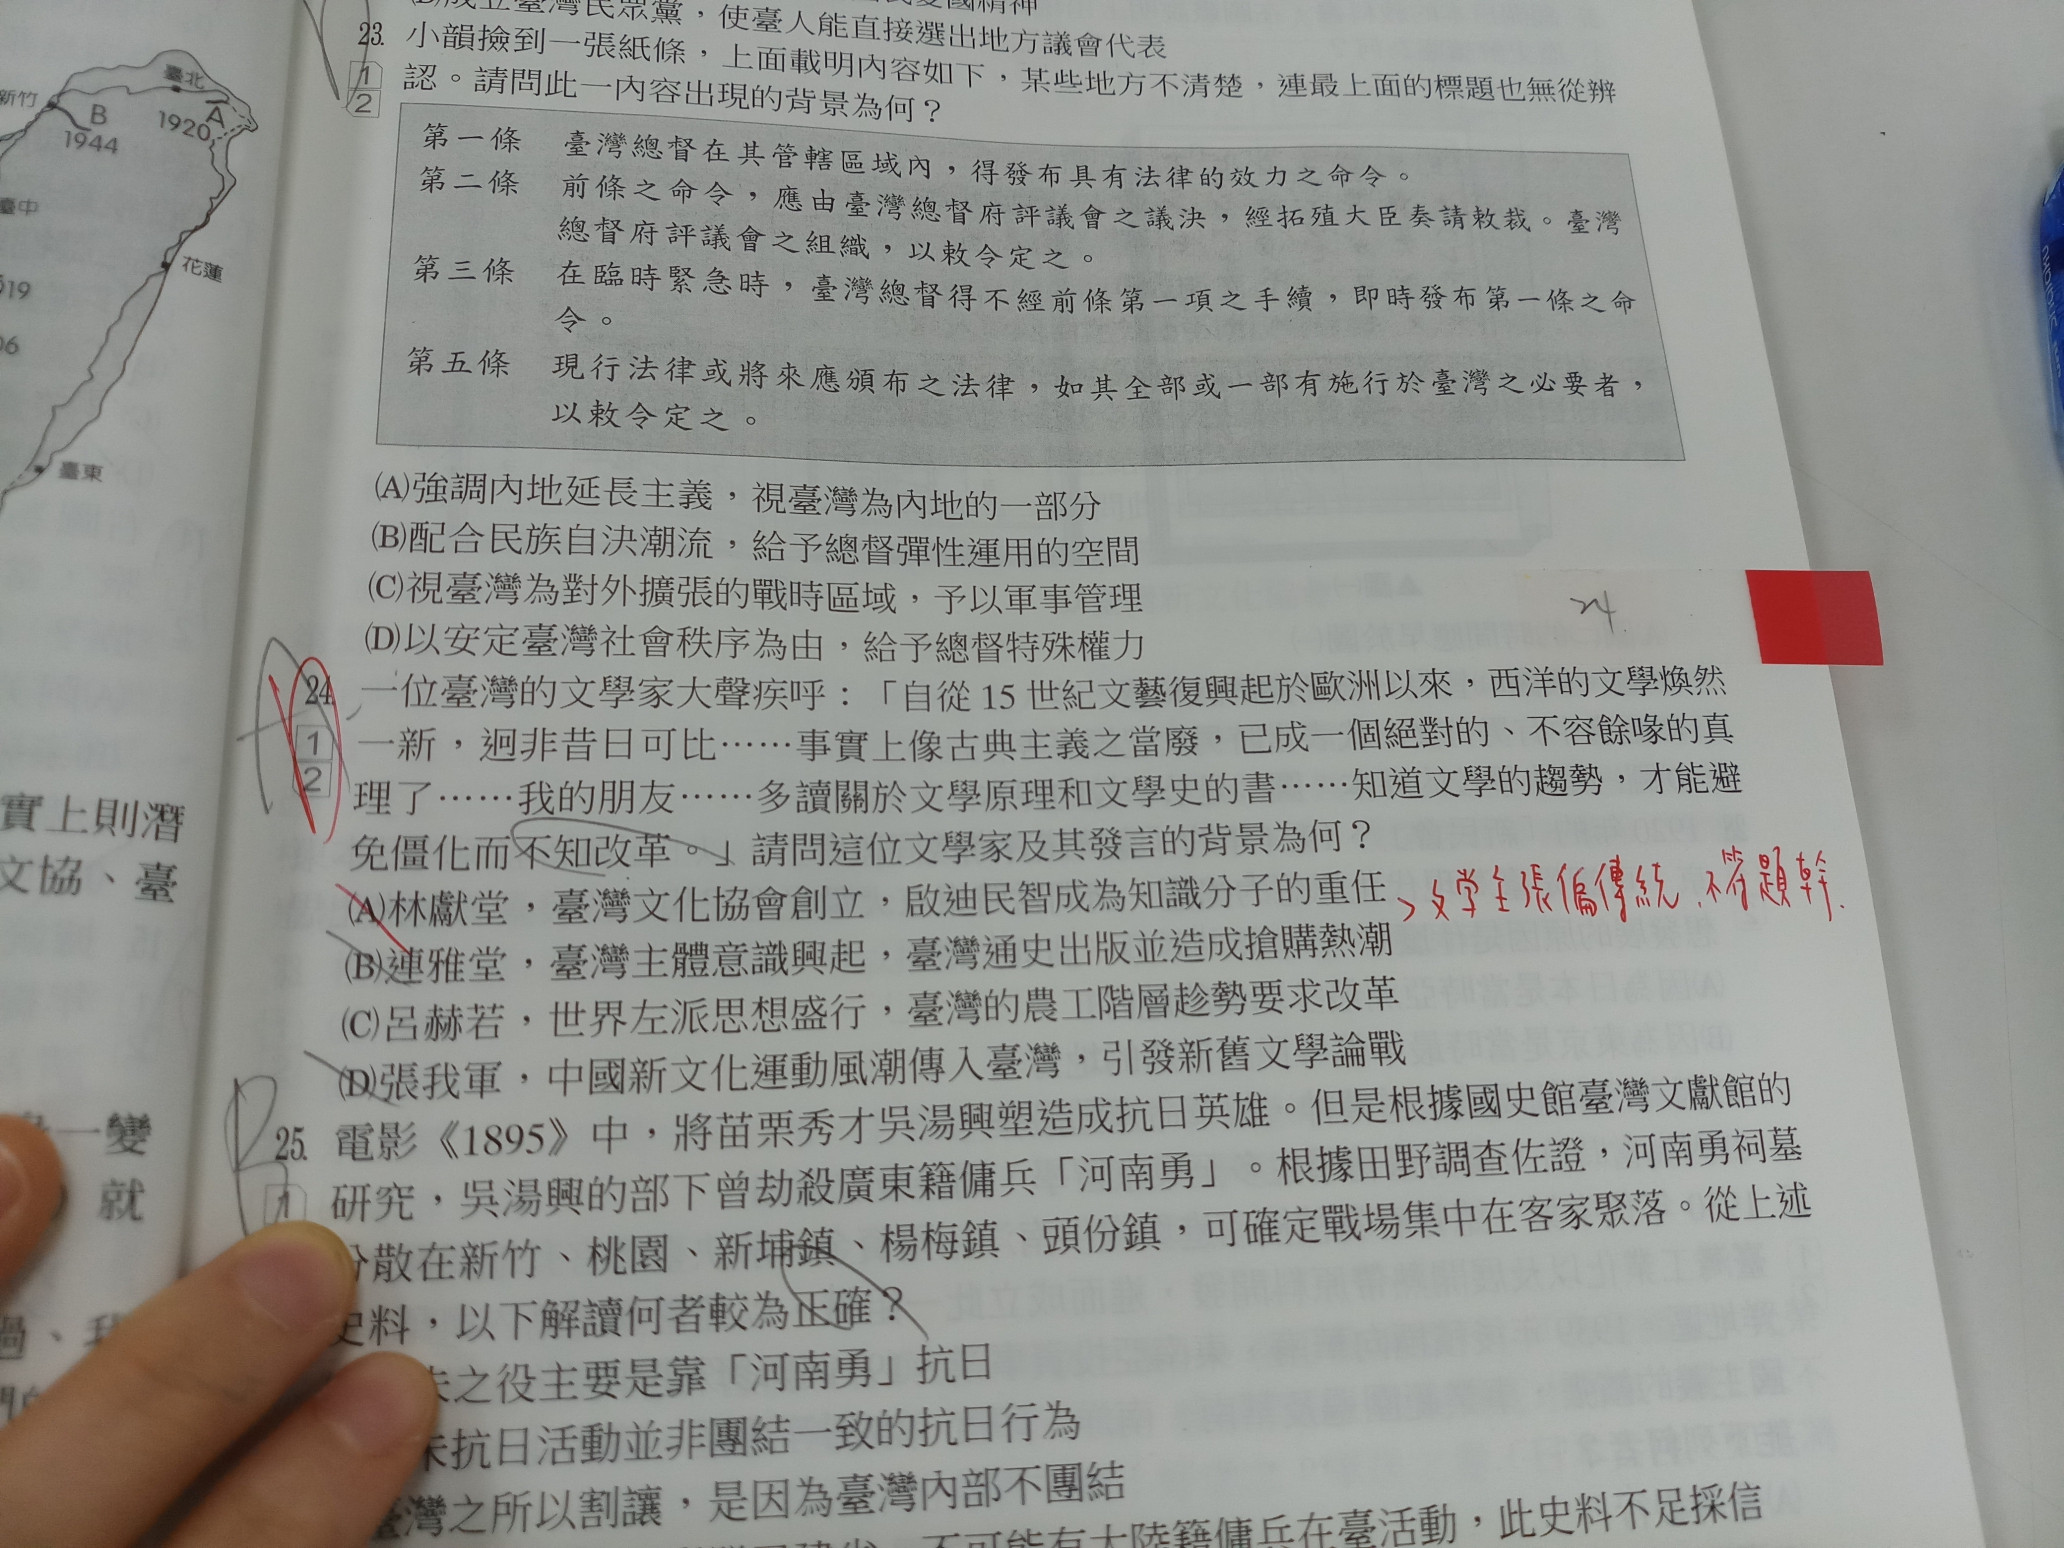 臺北
新竹
B
1944
1920
A
臺中
花蓮
臺東
實上則潛
文協、臺
一變
就
過、我
成立臺灣民眾黨,使臺人能直接選出地方議會代表
23. 小韻撿到一張紙條,上面載明內容如下,某些地方不清楚,連最上面的標題也無從辨
1
2
認。請問此一內容出現的背景為何?
第一條 臺灣總督在其管轄區域內,得發布具有法律的效力之命令。
第二條 前條之命令,應由臺灣總督府評議會之議決,經拓殖大臣奏請敕裁。臺灣
總督府評議會之組織,以敕令定之。
第三條 在臨時緊急時,臺灣總督得不經前條第一項之手續,即時發布第一條之命
令。
第五條 現行法律或將來應頒布之法律,如其全部或一部有施行於臺灣之必要者,
以敕令定之。
(A)強調內地延長主義,視臺灣為內地的一部分
(B)配合民族自決潮流,給予總督彈性運用的空間
(C)視臺灣為對外擴張的戰時區域,予以軍事管理
(D)以安定臺灣社會秩序為由,給予總督特殊權力
24
24. 一位臺灣的文學家大聲疾呼:「自從 15 世紀文藝復興起於歐洲以來,西洋的文學煥然
1
2
一新,迥非昔日可比⋯⋯事實上像古典主義之當廢,已成一個絕對的、不容餘喙的真
理了⋯⋯我的朋友⋯⋯多讀關於文學原理和文學史的書⋯⋯知道文學的趨勢,才能避
免僵化而不知改革。」請問這位文學家及其發言的背景為何?
(A)林獻堂,臺灣文化協會創立,啟迪民智成為知識分子的重任
文学主張偏傳統,不符題幹.
(B)連雅堂,臺灣主體意識興起,臺灣通史出版並造成搶購熱潮
(C)呂赫若,世界左派思想盛行,臺灣的農工階層趁勢要求改革
(D)張我軍,中國新文化運動風潮傳入臺灣,引發新舊文學論戰
B
25. 電影《1895》中,將苗栗秀才吳湯興塑造成抗日英雄。但是根據國史館臺灣文獻館的
1
研究,吳湯興的部下曾劫殺廣東籍傭兵「河南勇」。根據田野調查佐證,河南勇祠墓
分散在新竹、桃園、新埔鎮、楊梅鎮、頭份鎮,可確定戰場集中在客家聚落。從上述
史料,以下解讀何者較為正確?
之役主要是靠「河南勇」抗日
抗日活動並非團結一致的抗日行為
臺灣之所以割讓,是因為臺灣內部不團結
不可能有大陸籍傭兵在臺活動,此史料不足採信